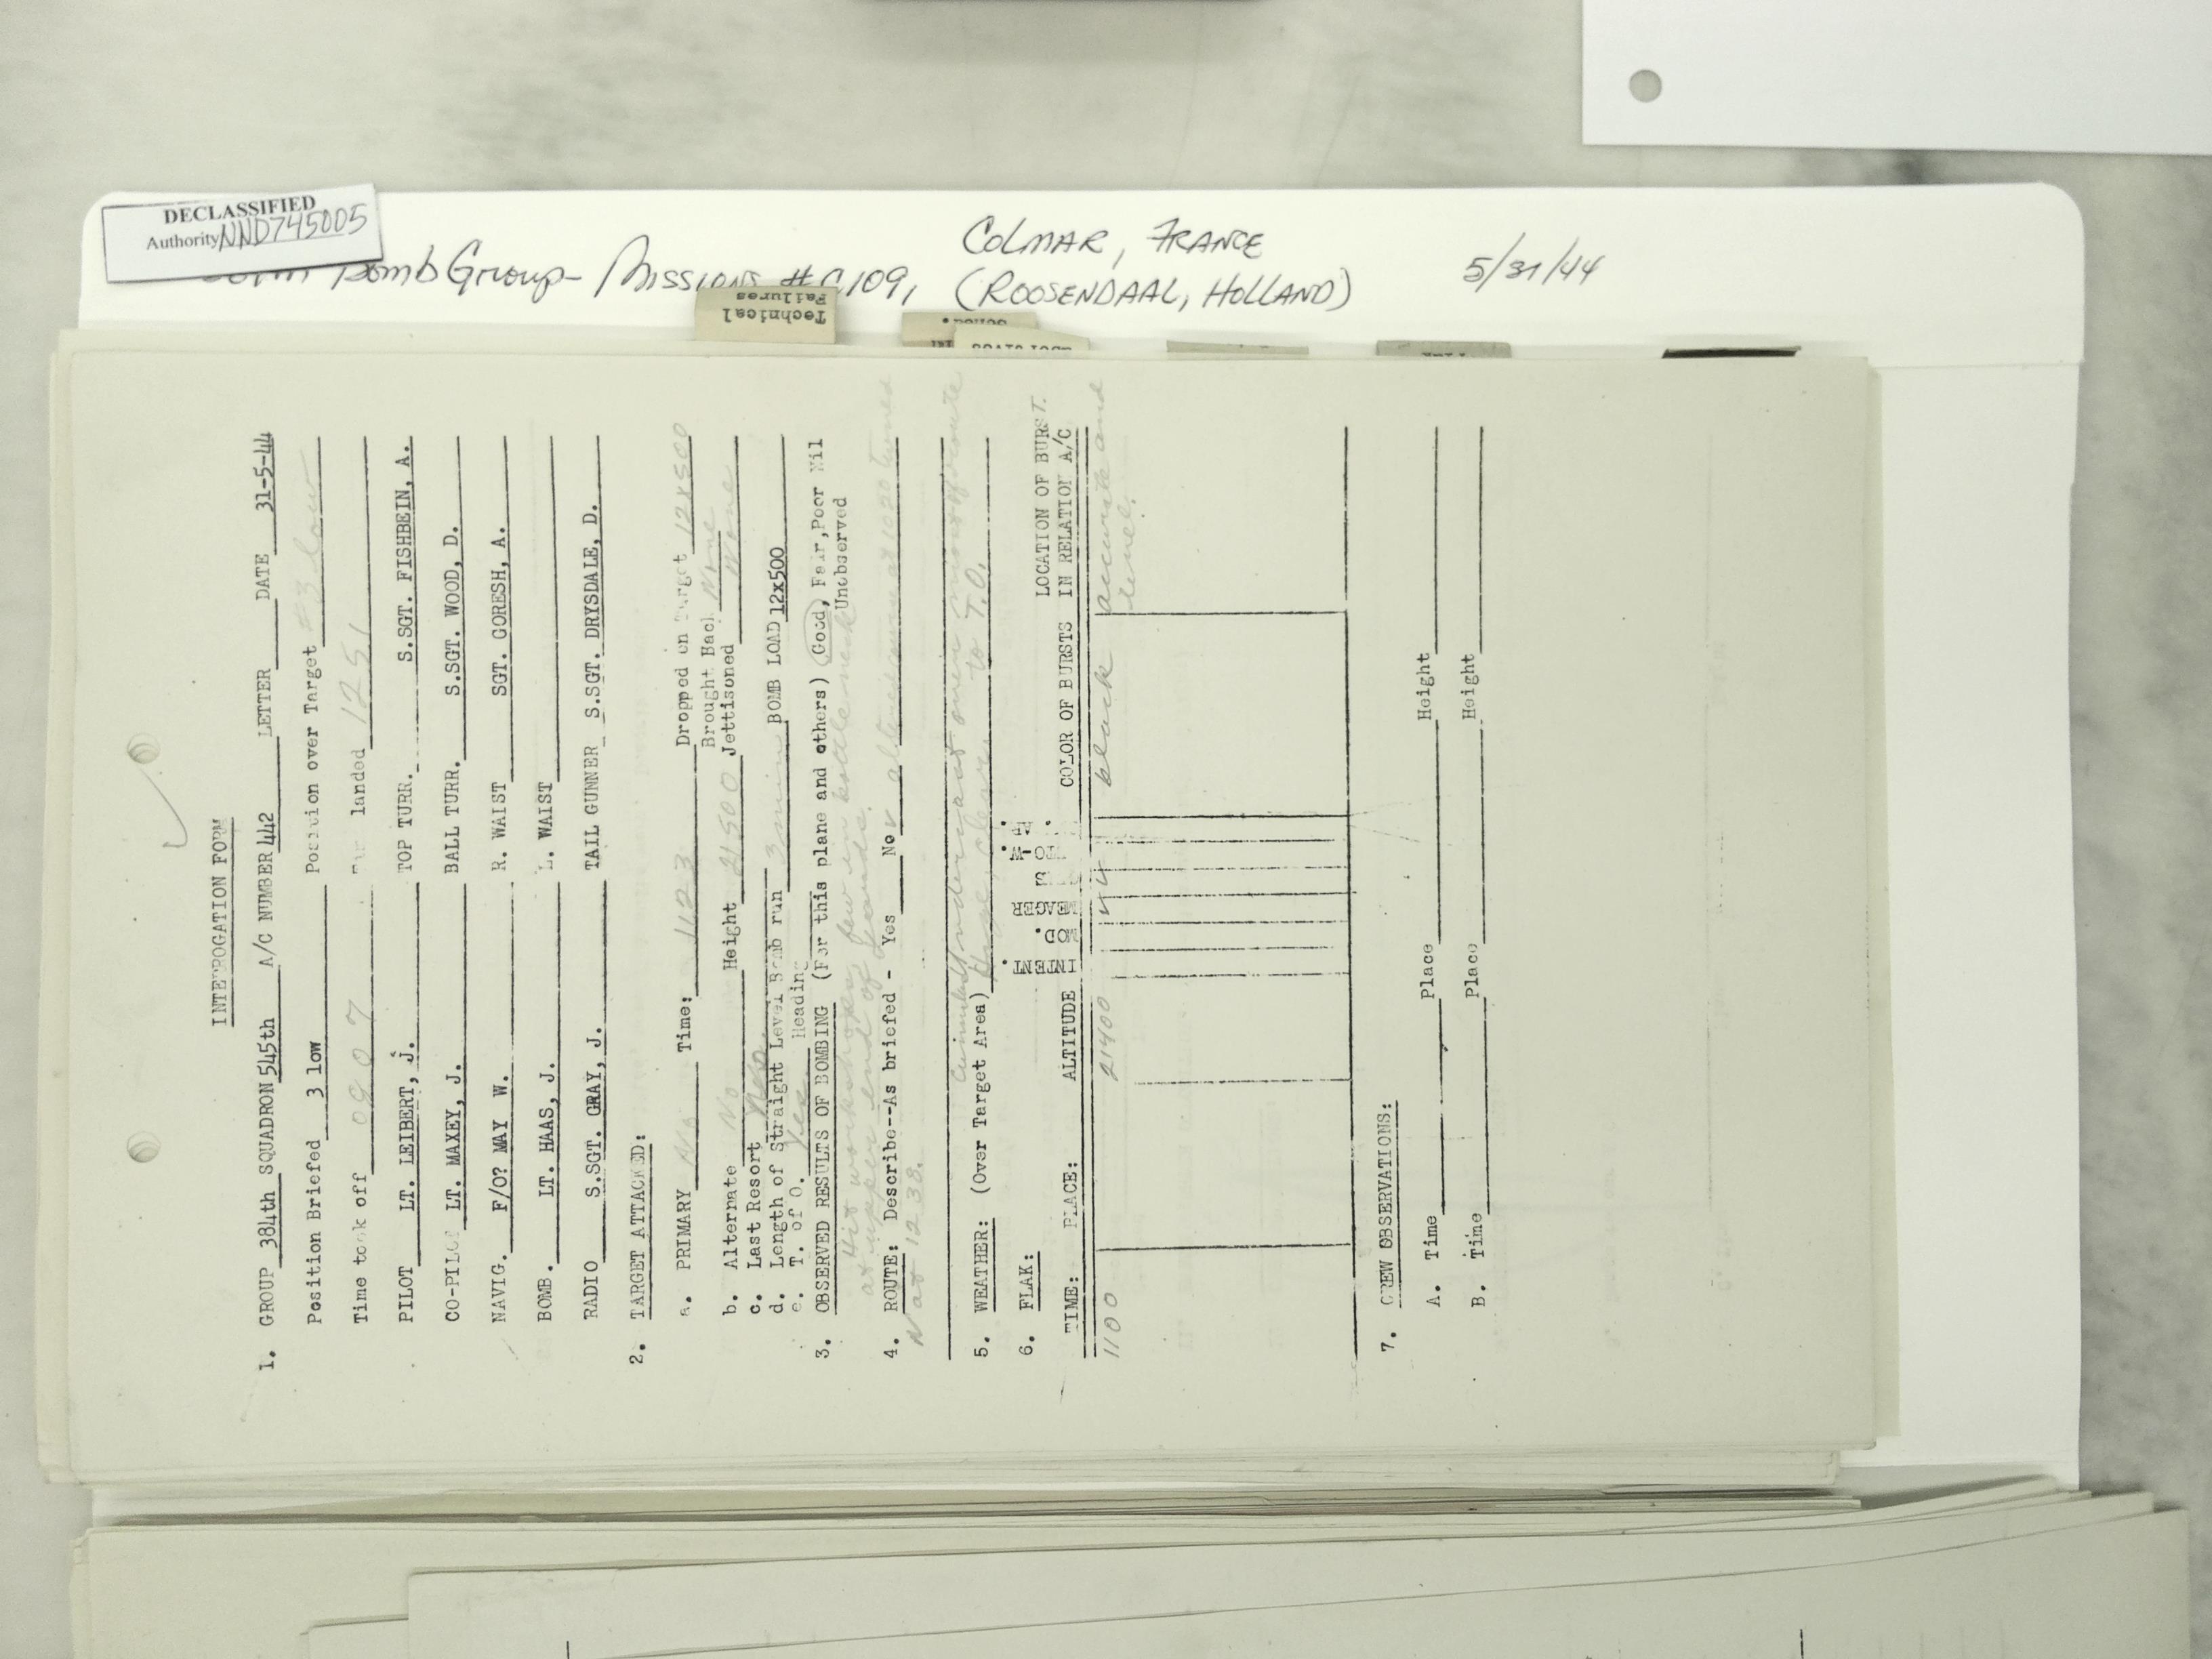 DECLASSIFIED
Authority NND745005
Bomb Group - Missions # 109, COLMAR, FRANCE
(ROOSENDAAL, HOLLAND)
5/31/44
Technical
Failures
INTERROGATION FORM
1. GROUP 384th SQUADRON 545th A/C NUMBER 442 LETTER DATE 31-5-44
Position Briefed 3 low Position over Target #3 low
Time took off 0907 landed 1251
PILOT LT. LEIBERT, J. TOP TURR. S.SGT. FISHBEIN, A.
CO-PILOT LT. MAXEY, J. BALL TURR. S.SGT. WOOD, D.
NAVIG. F/O? MAY W. R. WAIST SGT. GORESH, A.
BOMB. LT. HAAS, J. L. WAIST
RADIO S.SGT. GRAY, J. TAIL GUNNER S.SGT. DRYSDALE, D.
2. TARGET ATTACKED:
a. PRIMARY No Time: 1123 Dropped on Target 12x500
Brought Back None
b. Alternate No Height 21500 Jettisoned None
c. Last Resort Yes
d. Length of Straight Level Bomb run 3 min BOMB LOAD 12x500
e. T. of O. Yes Heading
3. OBSERVED RESULTS OF BOMBING (For this plane and others) Good, Fair, Poor Nil
Unobserved
Hit workshops, few in bottle neck
at upper end of yards.
4. ROUTE: Describe--As briefed - Yes No v altered course at 1020 turned
N at 1238.
5. WEATHER: (Over Target Area) Cumulus undercast over most of route
Huge, clear to T.O.
6. FLAK:
LOCATION OF BURST.
TIME: PLACE: ALTITUDE INTENT. MOD. MEAGER COLOR OF BURSTS IN RELATION A/C
1100 21400 v v black accurate and
level.
7. CREW OBSERVATIONS:
A. Time Place Height
B. Time Place Height